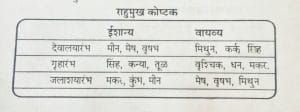 राहुमुख कोष्टक
ईशान्य वायव्य
देवालयारंभ मीन, मेष, वृषभ मिथुन, कर्क सिंह
गृहारंभ सिंह, कन्या, तूळ वृश्चिक, धन, मकर.
जलाशयारंभ मकर, कुंभ, मीन मेष, वृषभ, मिथुन